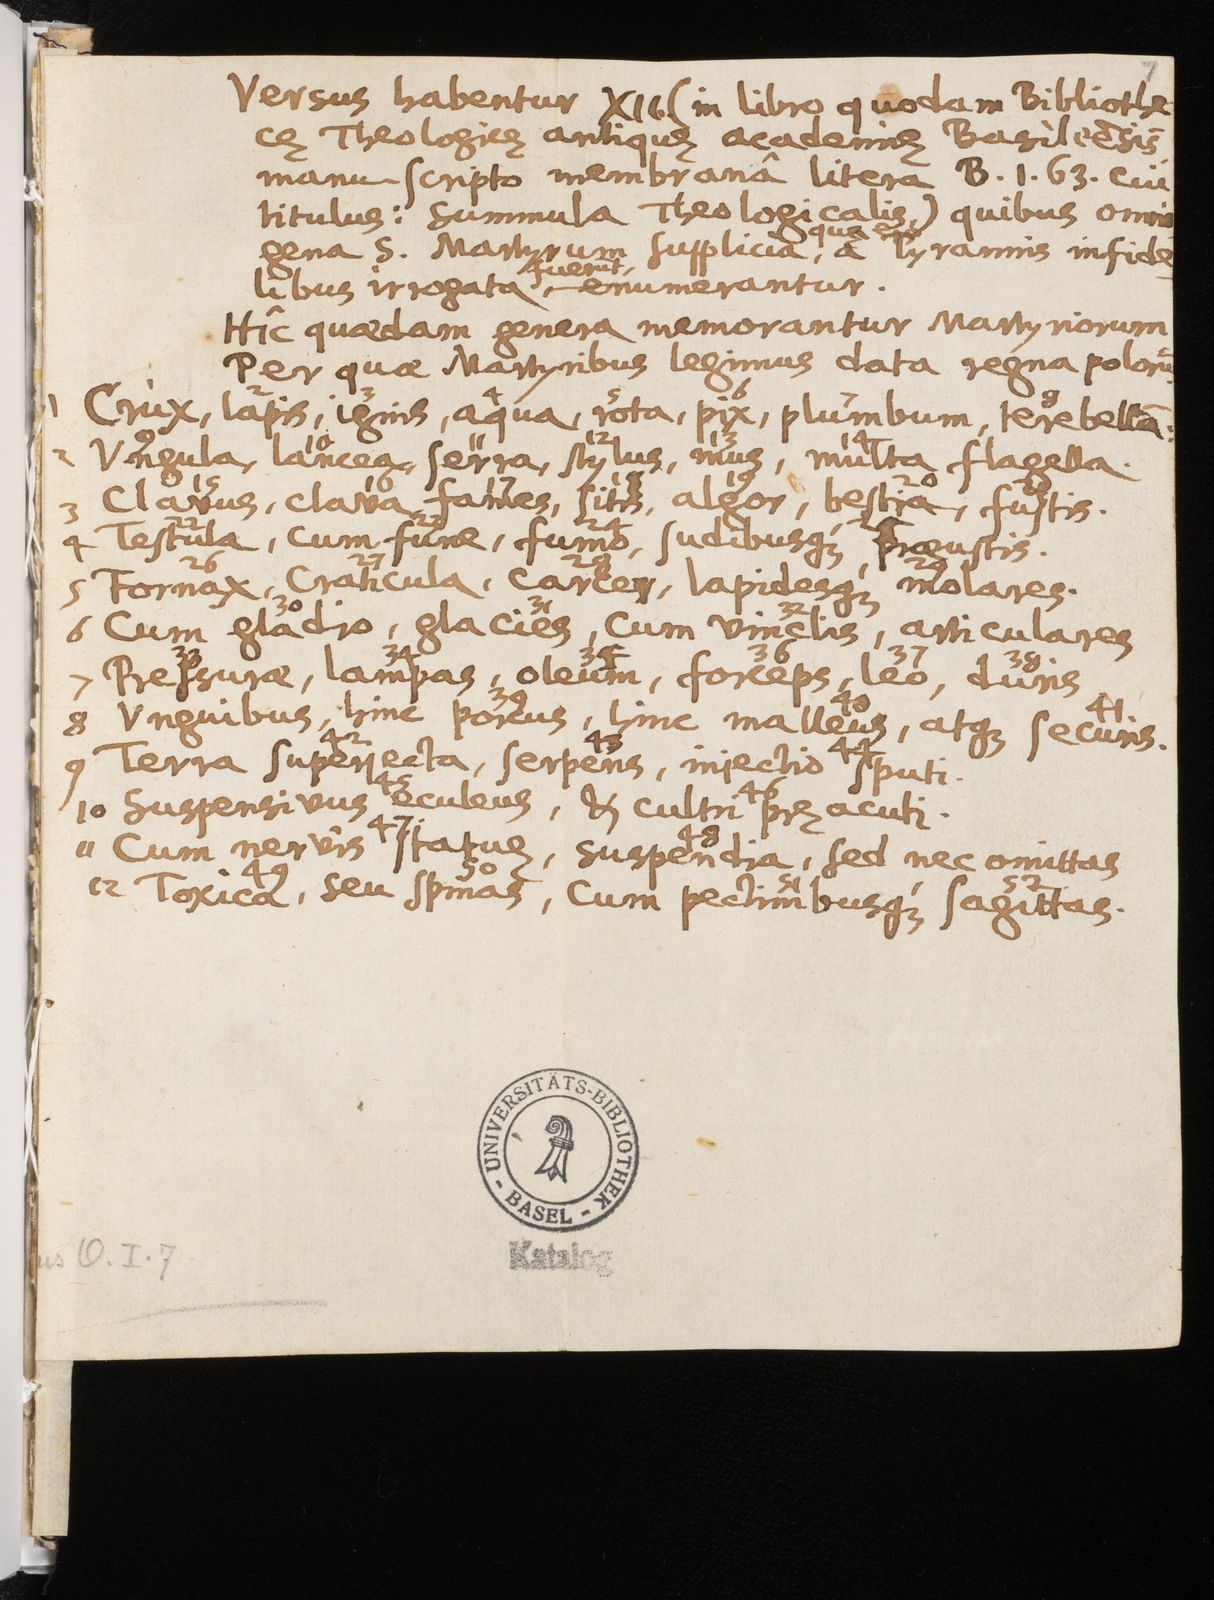 7
Versus habentur XII (in libro quodam Bibliothe
cę Theologicę antiquę academię Basileēsis
manu scripto membranâ litera B. 1. 63. cui
titulus: Summula Theologicalis,) quibus omni
gena S. Martyrum supplicia, quę à Tyrannis infide
libus irrogata fuerūt, enumerantur.
Hîc quædam genera memorantur Martyriorum
Per quæ Martyribus legimus data regna polorū.
1 Crux, lapis, ignis, aqua, rota, pix, plumbum, terebella:
1 2 3 4 5 6 7 8
2 Vngula, lancea, serra, stylus, mus, multa flagella.
9 10 11 12 13 14
3 Clavus, clava, fames, sitis, algor, bestia, fustis.
15 16 17 18 19 20 21
4 Testula, cum fune, fumo, sudibusqꝫ præustis.
22 23 24 25
5 Fornax, Craticula, carcer, lapidesqꝫ molares.
26 27 28 29
6 Cum gladio, glacies, cum vinclis, articulares
30 31 32
7 Pressuræ, lampas, oleum, forceps, leo, duris
33 34 35 36 37 38
8 Vnguibus, hinc porcus, hinc malleus, atqꝫ securis.
39 40 41
9 Terra superjecta, serpens, injectio sputi.
42 43 44
10 Suspensivus eculeus, & cultri pręacuti.
45 46
11 Cum nervis statuę, suspendia, sed nec omittas
47 48
12 Toxica, seu spinas, cum pectinibusqꝫ sagittas.
49 50 51 52
UNIVERSITÄTS-BIBLIOTHEK
- BASEL -
Katalog
us O. I. 7